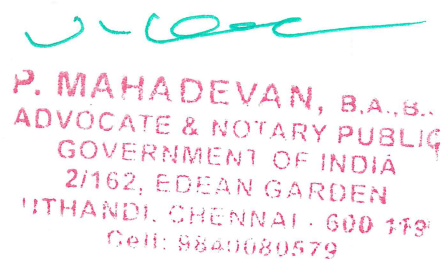 P. MAHADEVAN, B.A.,B.
ADVOCATE & NOTARY PUBLIC
GOVERNMENT OF INDIA
2/162, EDEAN GARDEN
UTHANDI, CHENNAI - 600 119
Cell: 9840080579